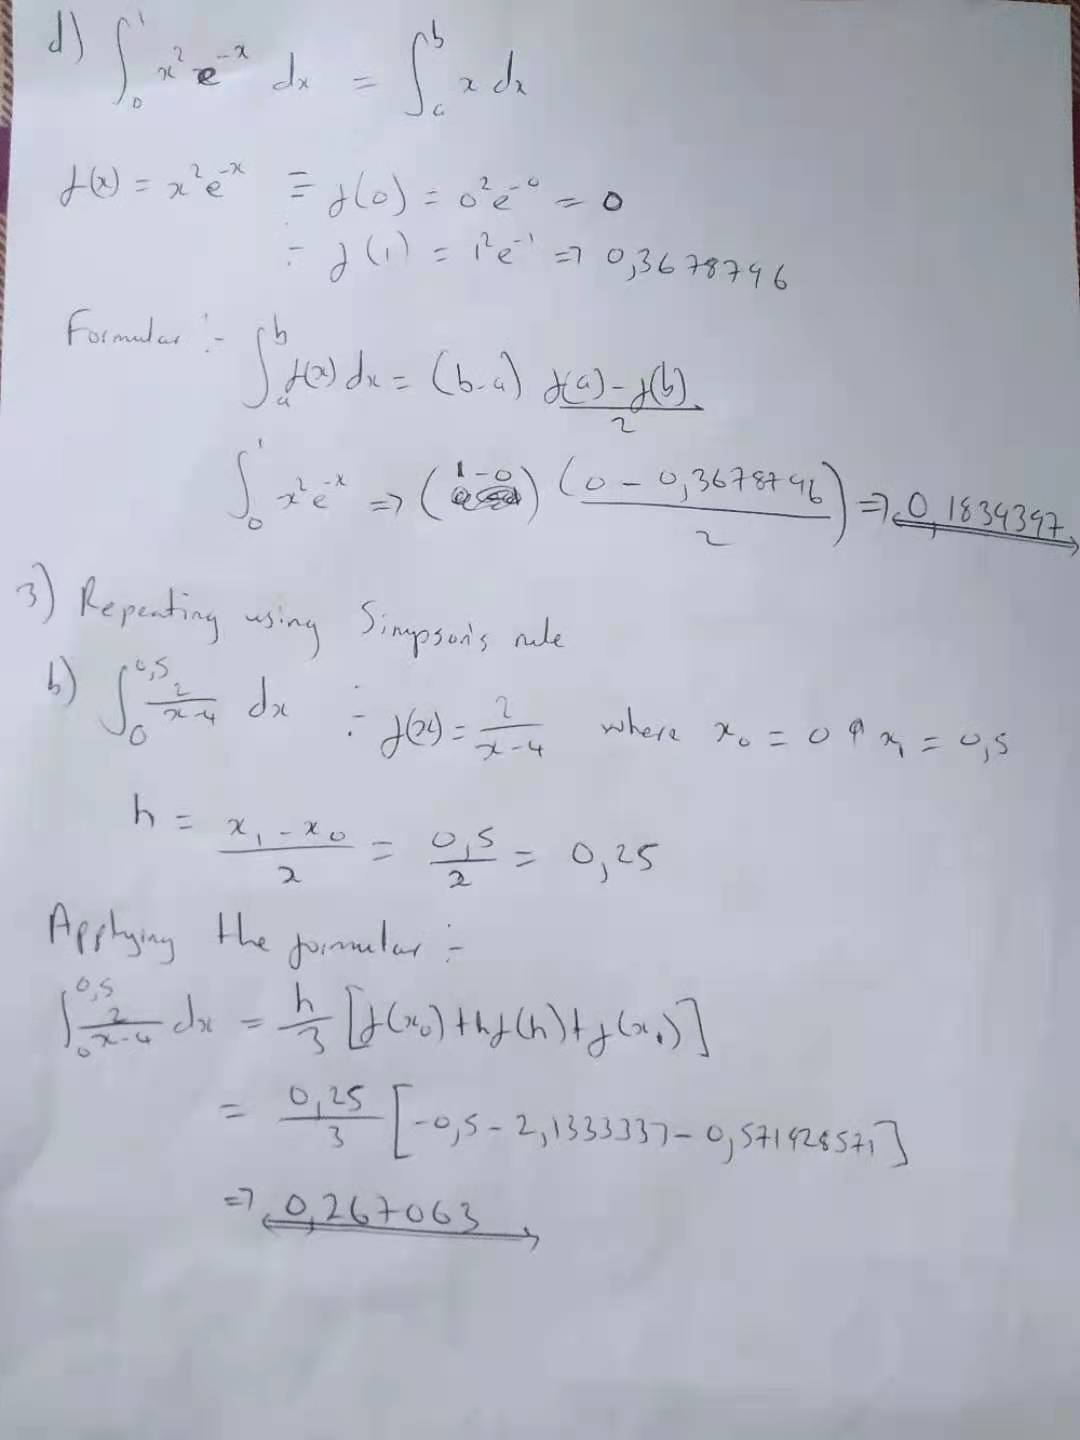 d) ∫₀¹ x² e⁻ˣ dx = ∫ₐᵇ x dx
f(x) = x² e⁻ˣ ≡ f(0) = 0² e⁻⁰ = 0
∴ f(1) = 1² e⁻¹ => 0,3678796
Formular :- ∫ₐᵇ f(x) dx = (b-a) (f(a) - f(b))/2
∫₀¹ x² e⁻ˣ => (1-0) (0 - 0,3678796)/2 => 0,1839397
3) Repeating using Simpson's rule
b) ∫₀^0,5 2/(x-4) dx ∴ f(x) = 2/(x-4) where x₀ = 0 & x₁ = 0,5
h = (x₁ - x₀)/2 = 0,5/2 = 0,25
Applying the formular :-
∫₀^0,5 2/(x-4) dx = h/3 [f(x₀) + hf(h) + f(x₁)]
= 0,25/3 [-0,5 - 2,1333337 - 0,571428571]
=> 0,267063